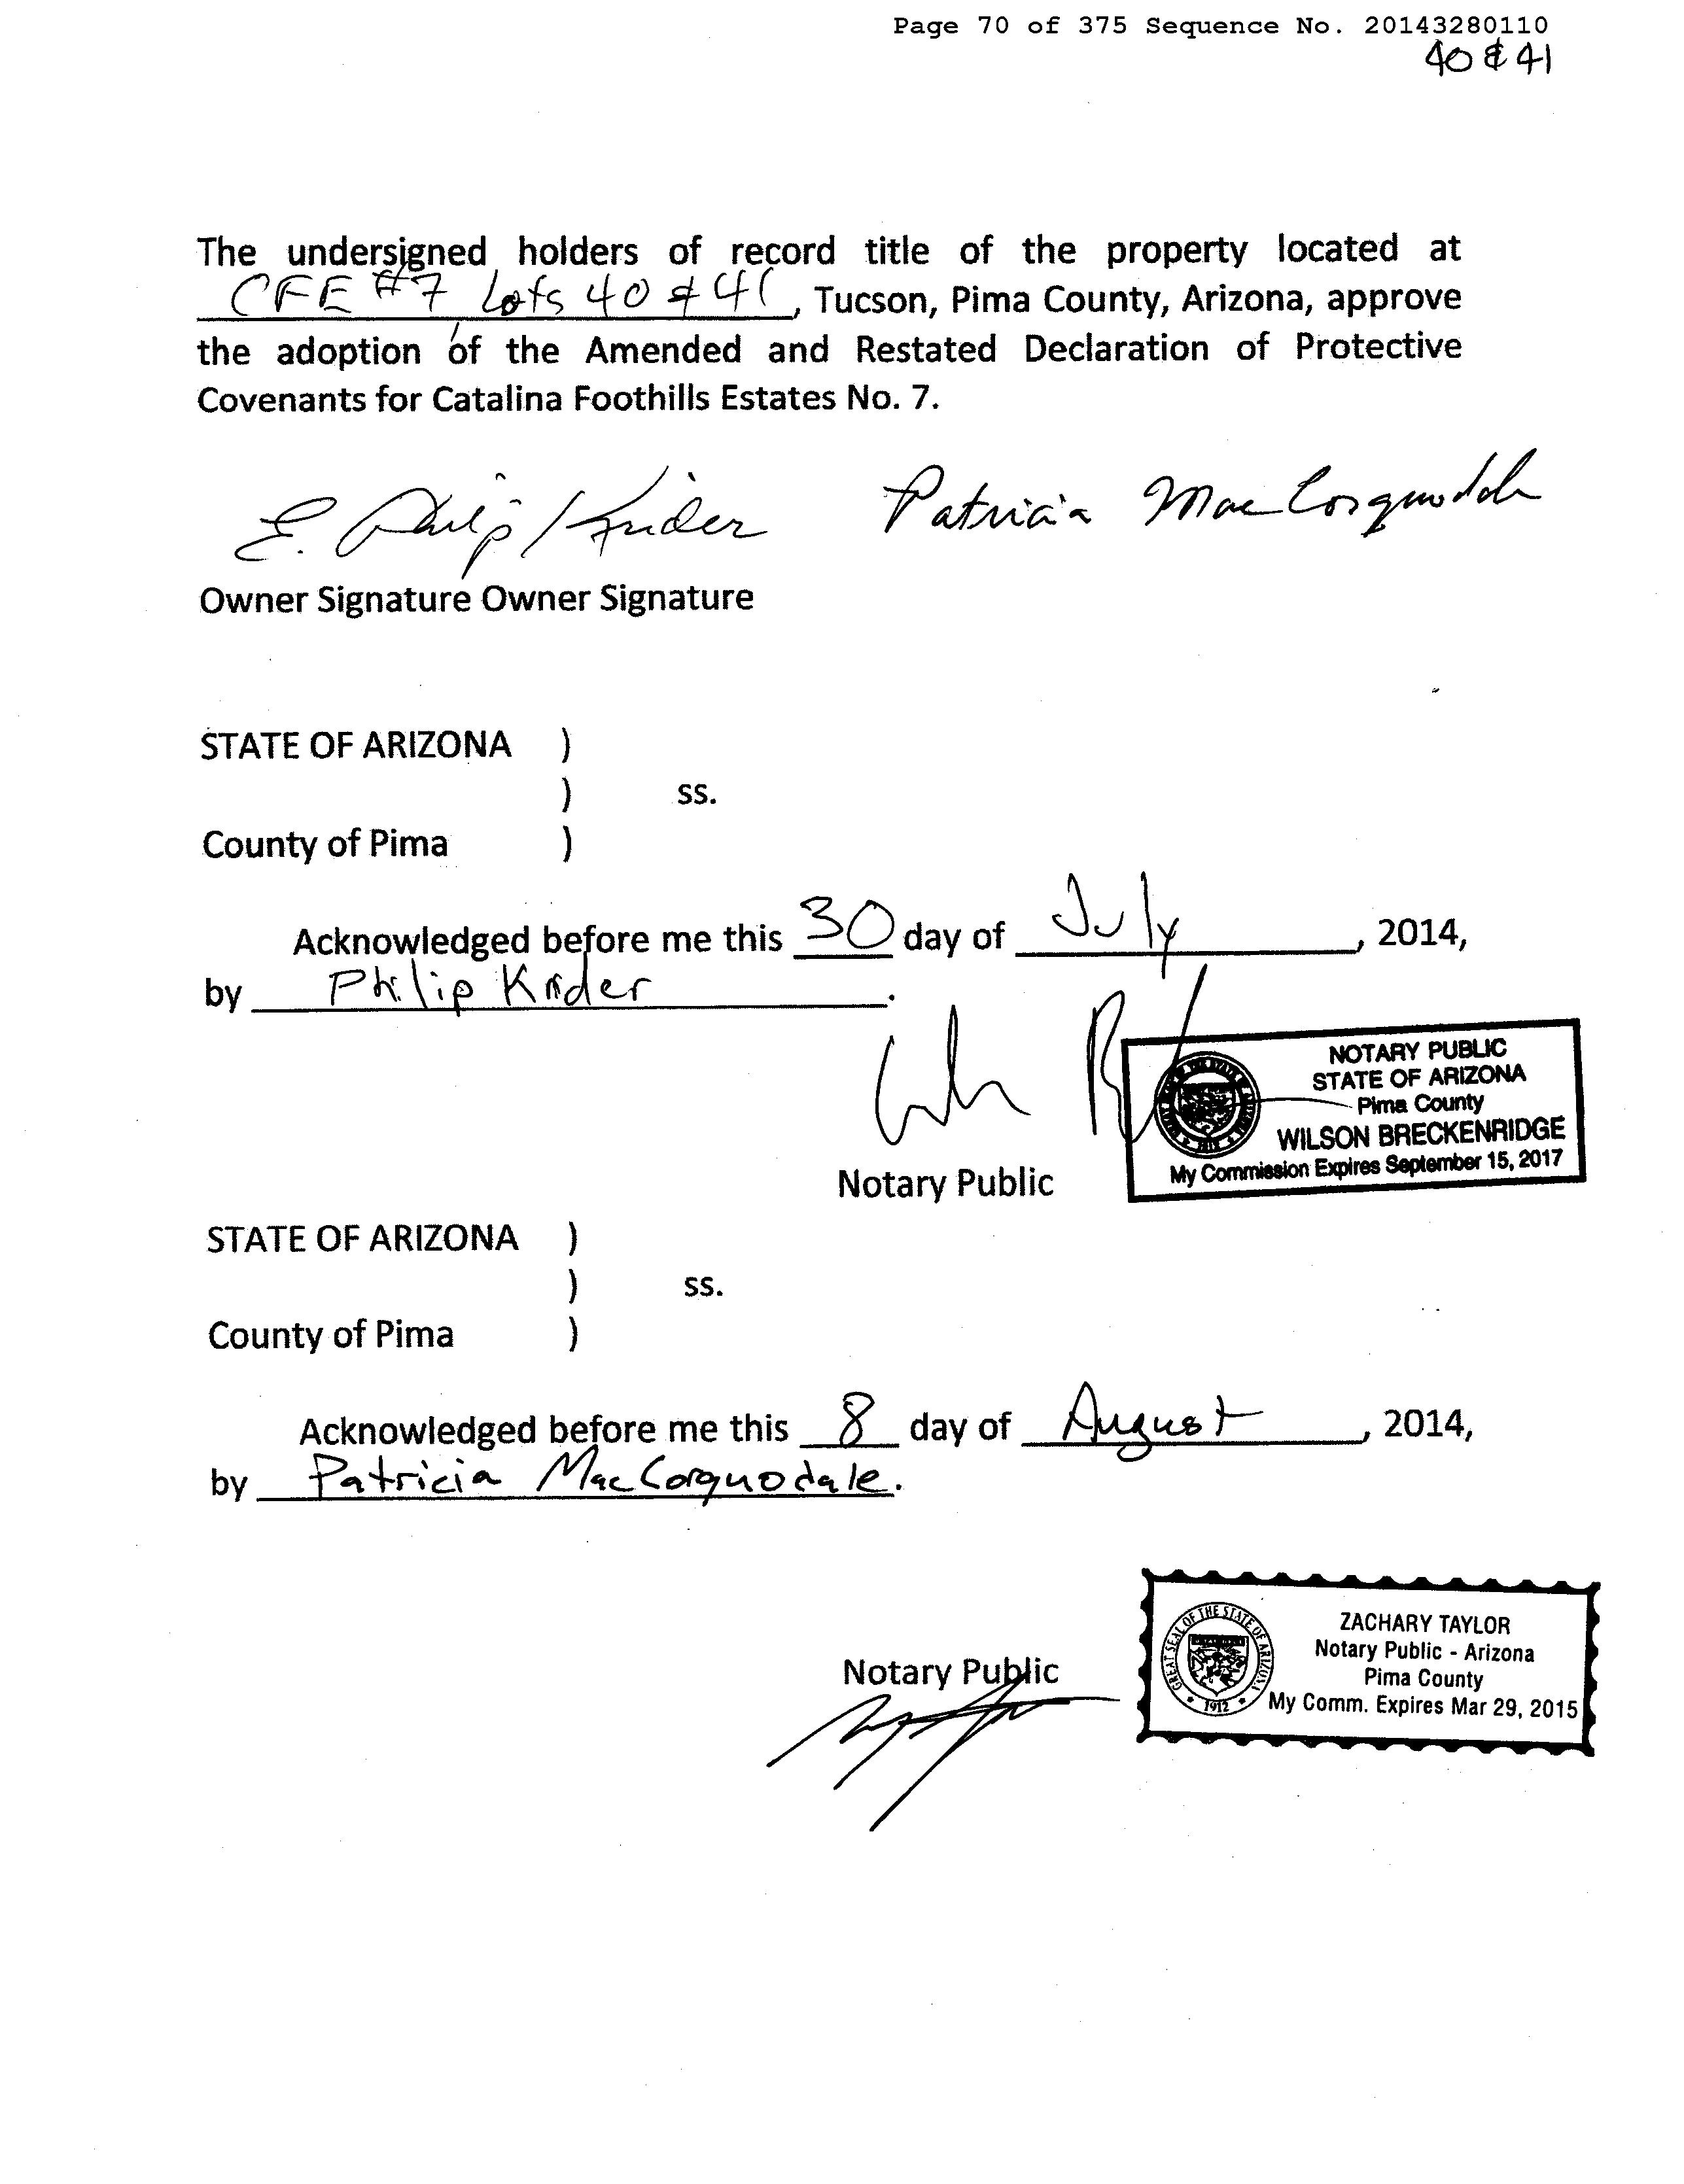 Page 70 of 375 Sequence No. 20143280110
40 & 41
The undersigned holders of record title of the property located at
CFE #7 Lots 40 & 41, Tucson, Pima County, Arizona, approve
the adoption of the Amended and Restated Declaration of Protective
Covenants for Catalina Foothills Estates No. 7.
E. Philip Krider Patricia MacCorquodale
Owner Signature Owner Signature
STATE OF ARIZONA )
) ss.
County of Pima )
Acknowledged before me this 30 day of July, 2014,
by Philip Krider.
NOTARY PUBLIC
STATE OF ARIZONA
Pima County
WILSON BRECKENRIDGE
My Commission Expires September 15, 2017
Notary Public
STATE OF ARIZONA )
) ss.
County of Pima )
Acknowledged before me this 8 day of August, 2014,
by Patricia MacCorquodale.
Notary Public
GREAT SEAL OF THE STATE OF ARIZONA
1912
ZACHARY TAYLOR
Notary Public - Arizona
Pima County
My Comm. Expires Mar 29, 2015